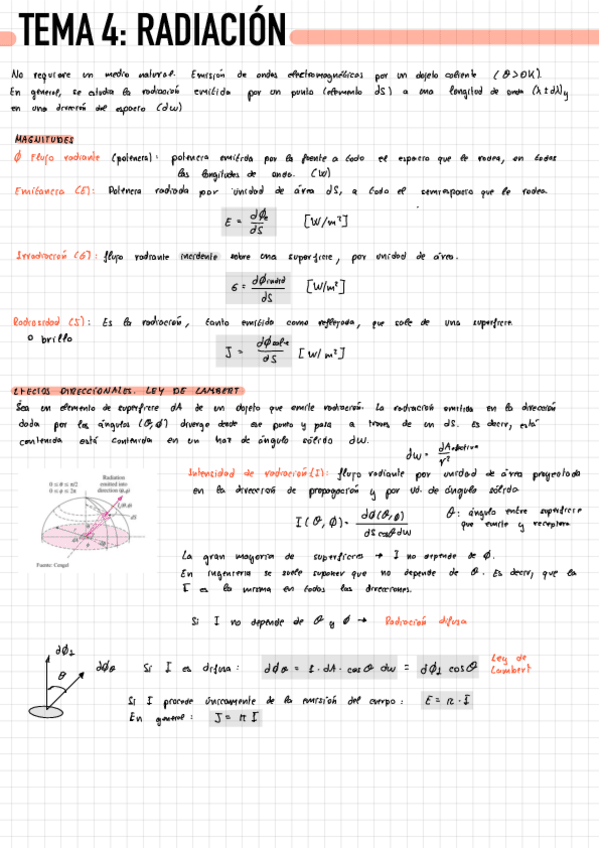 TEMA 4: RADIACIÓN
No requiere un medio natural. Emisión de ondas electromagnéticas por un objeto caliente (θ>0K).
En general, se estudia la radiación emitida por un punto (elemento dS) a una longitud de onda (λ±dλ) y
en una dirección del espacio (dw)
MAGNITUDES
Φ Flujo radiante (potencia): potencia emitida por la fuente a todo el espacio que le rodea, en todas
las longitudes de onda. (W)
Emitancia (E): Potencia radiada por unidad de área dS, a todo el semiespacio que le rodea.
E = dΦe/dS [W/m²]
Irradiación (G): flujo radiante incidente sobre una superficie, por unidad de área.
G = dΦincid/dS [W/m²]
Radiosidad (J): Es la radiación, tanto emitida como reflejada, que sale de una superficie
o brillo
J = dΦsale/dS [W/m²]
EFECTOS DIRECCIONALES. LEY DE LAMBERT
Sea un elemento de superficie dA de un objeto que emite radiación. La radiación emitida en la dirección
dada por los ángulos (θ,φ) diverge desde ese punto y pasa a través de un dS. Es decir, está
contenida está contenida en un haz de ángulo sólido dw.
dw = dA/r²
Radiation
emitted into
direction (θ,φ)
0 ≤ θ ≤ π/2
0 ≤ φ ≤ 2π
Fuente: Cengel
Intensidad de radiación (I): flujo radiante por unidad de área proyectada
en la dirección de propagación y por ud. de ángulo sólido.
I(θ,φ) = dΦ(θ,φ)/dS cosθ dw
θ: ángulo entre superficie
que emite y receptora
La gran mayoría de superficies → I no depende de φ.
En ingeniería se suele suponer que no depende de θ. Es decir, que la
I es la misma en todas las direcciones.
Si I no depende de θ y φ → Radiación difusa
dΦ⊥
θ
dΦθ
Si I es difusa: dΦθ = I · dA · cosθ dw = dΦ⊥ cosθ
Ley de
Lambert
Si I procede únicamente de la emisión del cuerpo: E = π · I
En general: J = π I